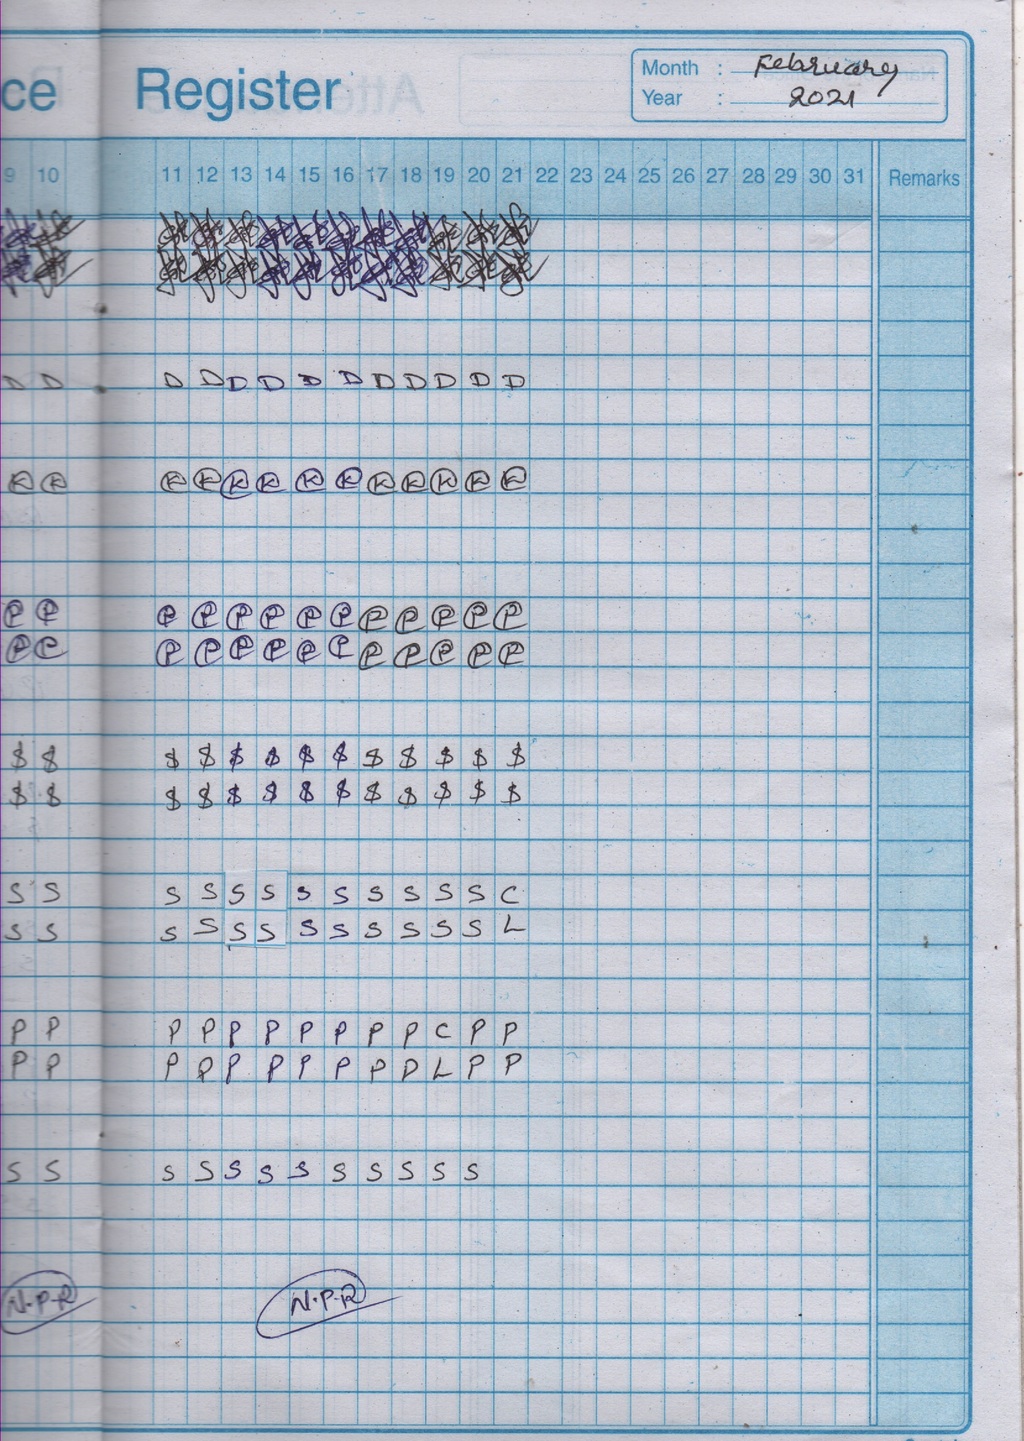 ce Register
Month : February
Year : 2021
9 10 11 12 13 14 15 16 17 18 19 20 21 22 23 24 25 26 27 28 29 30 31 Remarks
D D D D D D D D D D D D D
K K K K K K K K K K K K K
P P P P P P P P P P P P P
P P P P P P P P P P P P P
$ $ $ $ $ $ $ $ $ $ $ $ $
$ $ $ $ $ $ $ $ $ $ $ $ $
S S S S S S S S S S S S C
S S S S S S S S S S S S L
P P P P P P P P P P C P P
P P P P P P P P P P L P P
S S S S S S S S S S S S
N.P.R N.P.R